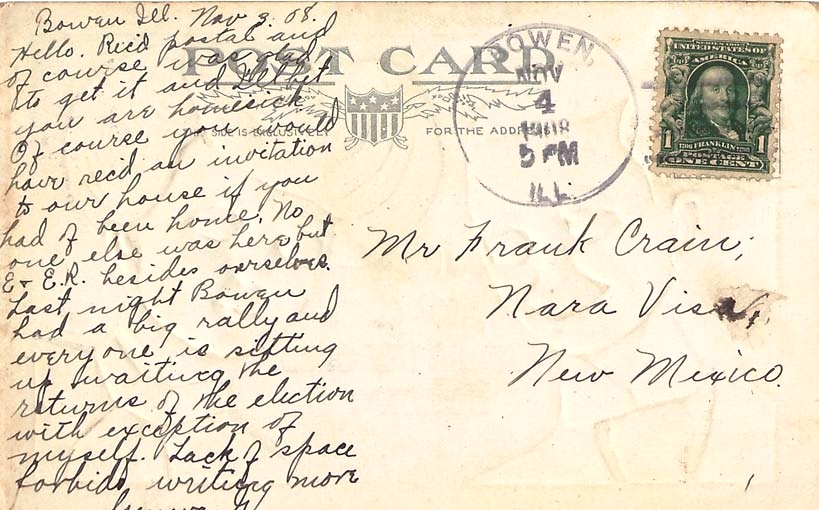 Bowen Ill. Nov 3. 08.
Hello. Rec'd postal and
of course was glad
to get it and I'll bet
you are homesick
Of course you would
have rec'd an invitation
to our house if you
had of been home. No
one else was here but
E + E.R. besides ourselves.
Last night Bowen
had a big rally and
every one is sitting
up waiting the
returns of the election
with exception of
myself. Lack of space
forbids writing more
POST CARD
SIDE IS EXCLUSIVELY FOR THE ADDRESS
BOWEN,
NOV
4
1908
5 PM
ILL.
UNITED STATES OF
AMERICA
1 1
FRANKLIN
POSTAGE
ONE CENT
Mr Frank Crain,
Nara Visa,
New Mexico.